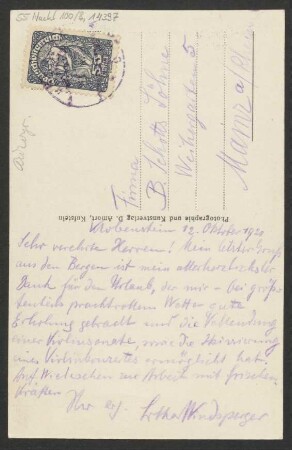 55 Nachl 100/B, 14397
Deutschösterreich
Firma
B. Schotts Söhne
Weihergarten 5
Mainz a/Rhein
Photographie und Kunstverlag D. Amort, Kufstein
Klobenstein 12. Oktober 1920
Sehr verehrte Herren! Mein letzter Gruß
aus den Bergen ist mein allerherzlichster
Dank für den Urlaub, der mir – bei größ-
tenteils prachtvollem Wetter – gute
Erholung gebracht und die Vollendung
einer Violinsonate, sowie die Skizzierung
eines Violinkonzertes ermöglicht hat.
Auf Wiedersehen zur Arbeit mit frischen
Kräften
Ihr erg. Lothar Windsperger